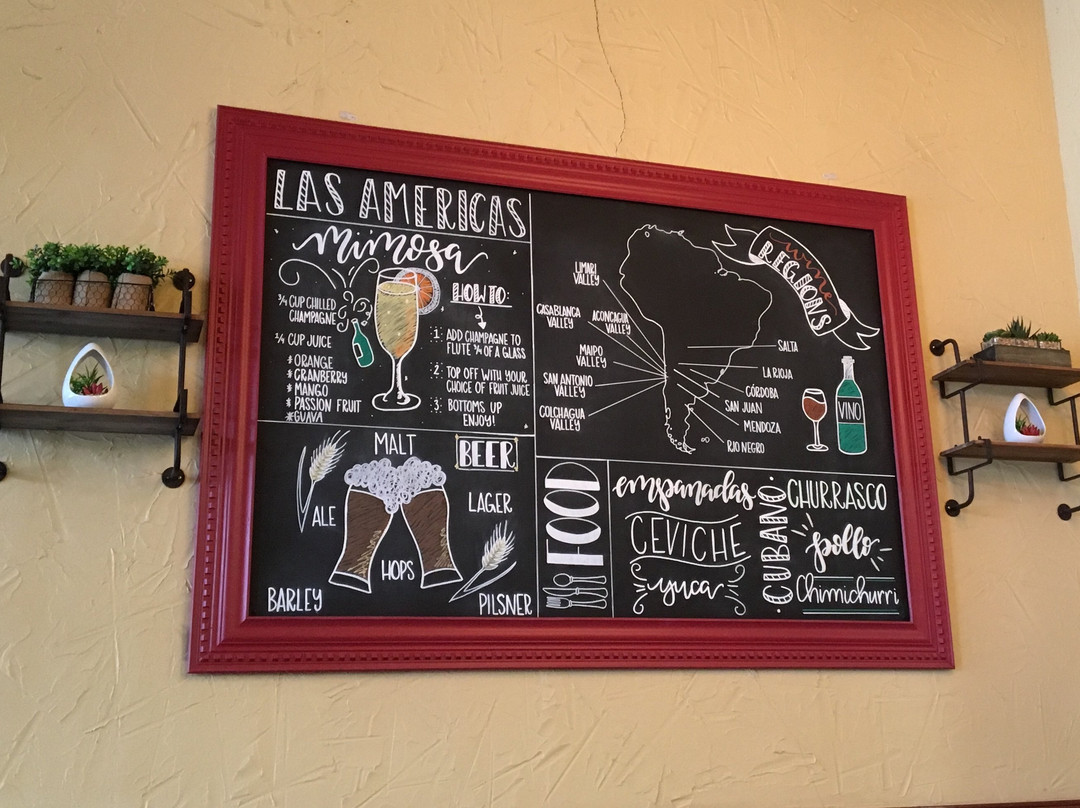 LAS AMERICAS
mimosa
¾ CUP CHILLED
CHAMPAGNE
¼ CUP JUICE
* ORANGE
* CRANBERRY
* MANGO
* PASSION FRUIT
* GUAVA
HOW TO:
1. ADD CHAMPAGNE TO
FLUTE ¾ OF A GLASS
2. TOP OFF WITH YOUR
CHOICE OF FRUIT JUICE
3. BOTTOMS UP
ENJOY!
wine
REGIONS
LIMARI
VALLEY
CASABLANCA
VALLEY
ACONCAGUA
VALLEY
MAIPO
VALLEY
SAN ANTONIO
VALLEY
COLCHAGUA
VALLEY
SALTA
LA RIOJA
CÓRDOBA
SAN JUAN
MENDOZA
RIO NEGRO
VINO
BEER
MALT
ALE
LAGER
HOPS
BARLEY
PILSNER
FOOD
empanadas
CEVICHE
yuca
CUBANO
CHURRASCO
pollo
Chimichurri